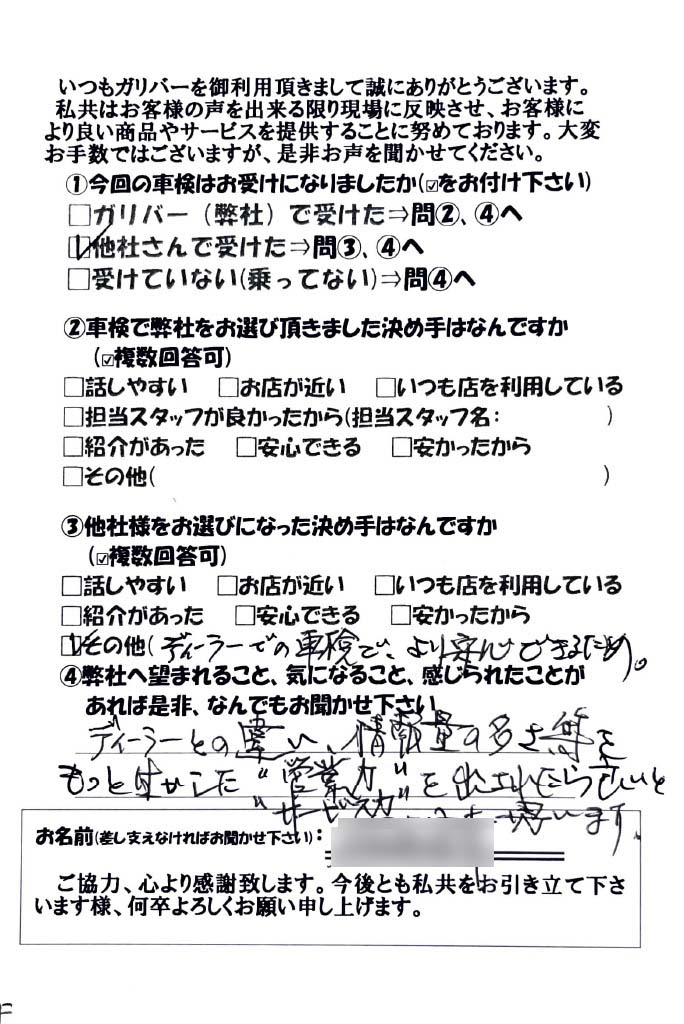 いつもガリバーを御利用頂きまして誠にありがとうございます。
私共はお客様の声を出来る限り現場に反映させ、お客様に
より良い商品やサービスを提供することに努めております。大変
お手数ではございますが、是非お声を聞かせてください。
①今回の車検はお受けになりましたか(☑をお付け下さい)
□ガリバー（弊社）で受けた⇒問②、④へ
☑他社さんで受けた⇒問③、④へ
□受けていない(乗ってない)⇒問④へ
②車検で弊社をお選び頂きました決め手はなんですか
(☑複数回答可)
□話しやすい □お店が近い □いつも店を利用している
□担当スタッフが良かったから(担当スタッフ名: )
□紹介があった □安心できる □安かったから
□その他( )
③他社様をお選びになった決め手はなんですか
(☑複数回答可)
□話しやすい □お店が近い □いつも店を利用している
□紹介があった □安心できる □安かったから
☑その他(ディーラーでの車検で、より安心できるため。
④弊社へ望まれること、気になること、感じられたことが
あれば是非、なんでもお聞かせ下さい
ディーラーとの違い、情報量の多さ等を
もっと生かした"営業力"を出
"サービス力" 思います。
お名前(差し支えなければお聞かせ下さい):
ご協力、心より感謝致します。今後とも私共をお引き立て下さ
います様、何卒よろしくお願い申し上げます。